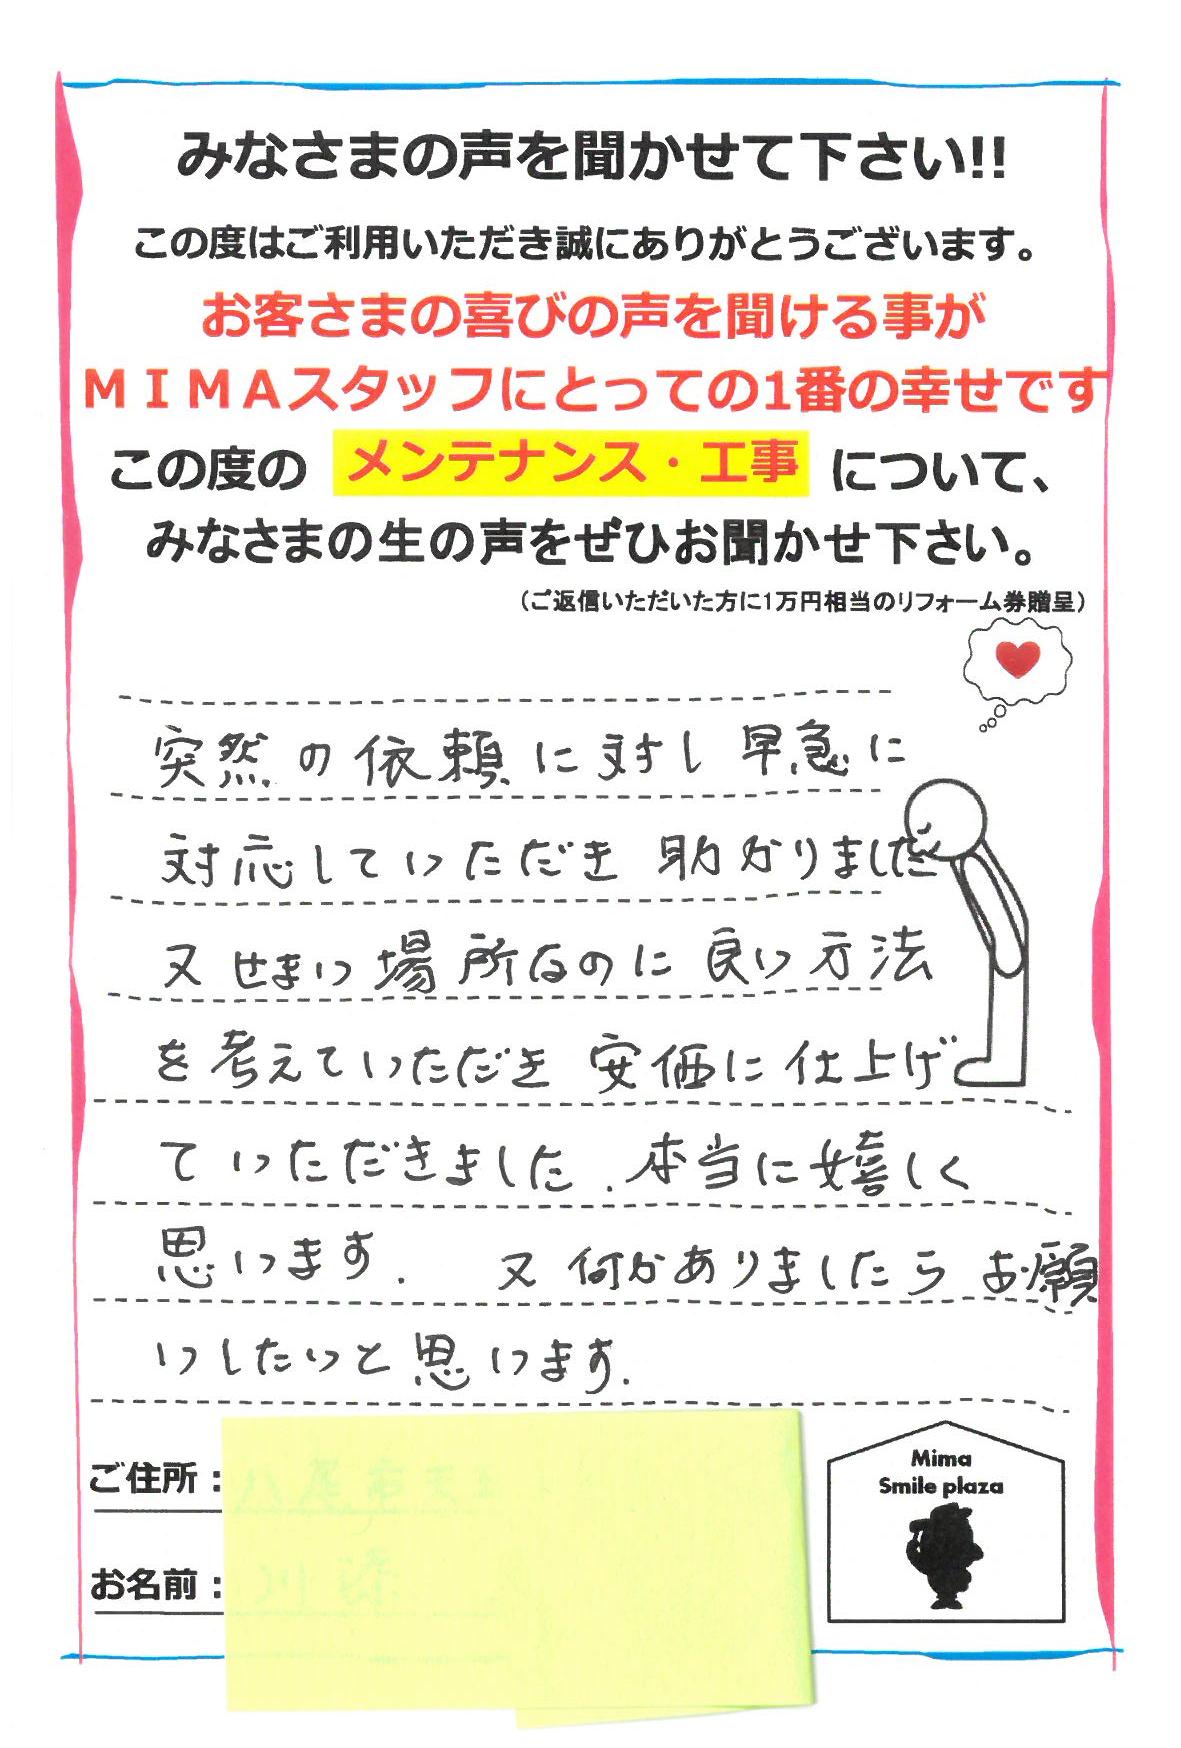 みなさまの声を聞かせて下さい!!
この度はご利用いただき誠にありがとうございます。
お客さまの喜びの声を聞ける事が
ＭＩＭＡスタッフにとっての1番の幸せです
この度の メンテナンス・工事 について、
みなさまの生の声をぜひお聞かせ下さい。
（ご返信いただいた方に1万円相当のリフォーム券贈呈）
突然の依頼に対し 早急に
対応していただき 助かりました
又 せまい場所なのに 良い方法
を考えていただき 安価に仕上げ
ていただきました. 本当に嬉しく
思います. 又 何かありましたら お願
いしたいと思います.
ご住所：
お名前：
Mima
Smile plaza